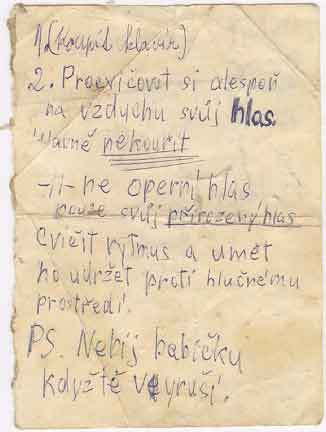 1. (koupit klavír)
2. Procvičovat si alespoň
na vzdychu svůj hlas.
Hlavně nekouřit
-11- ne operní hlas
pouze svůj přirozený hlas
Cvičit rytmus a umět
ho udržet proti hlučnému
prostředí.
PS. Nebij babičku
když tě vyruší.